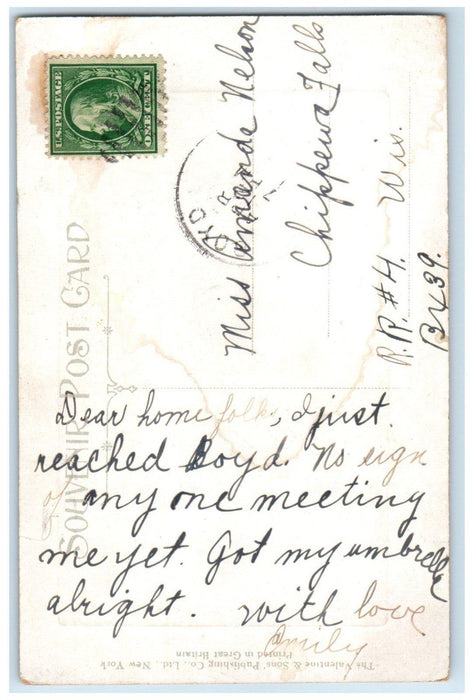 U.S. POSTAGE
ONE CENT
SOUVENIR POST CARD
Miss Amanda Nelson
Chippewa Falls
Wis.
R.R. #4.
B x 39.
Dear home folks, I just
reached Boyd. No sign
of any one meeting
me yet. Got my umbrella
alright. With love
Emily
The Valentine & Sons' Publishing Co., Ltd., New York
Printed in Great Britain